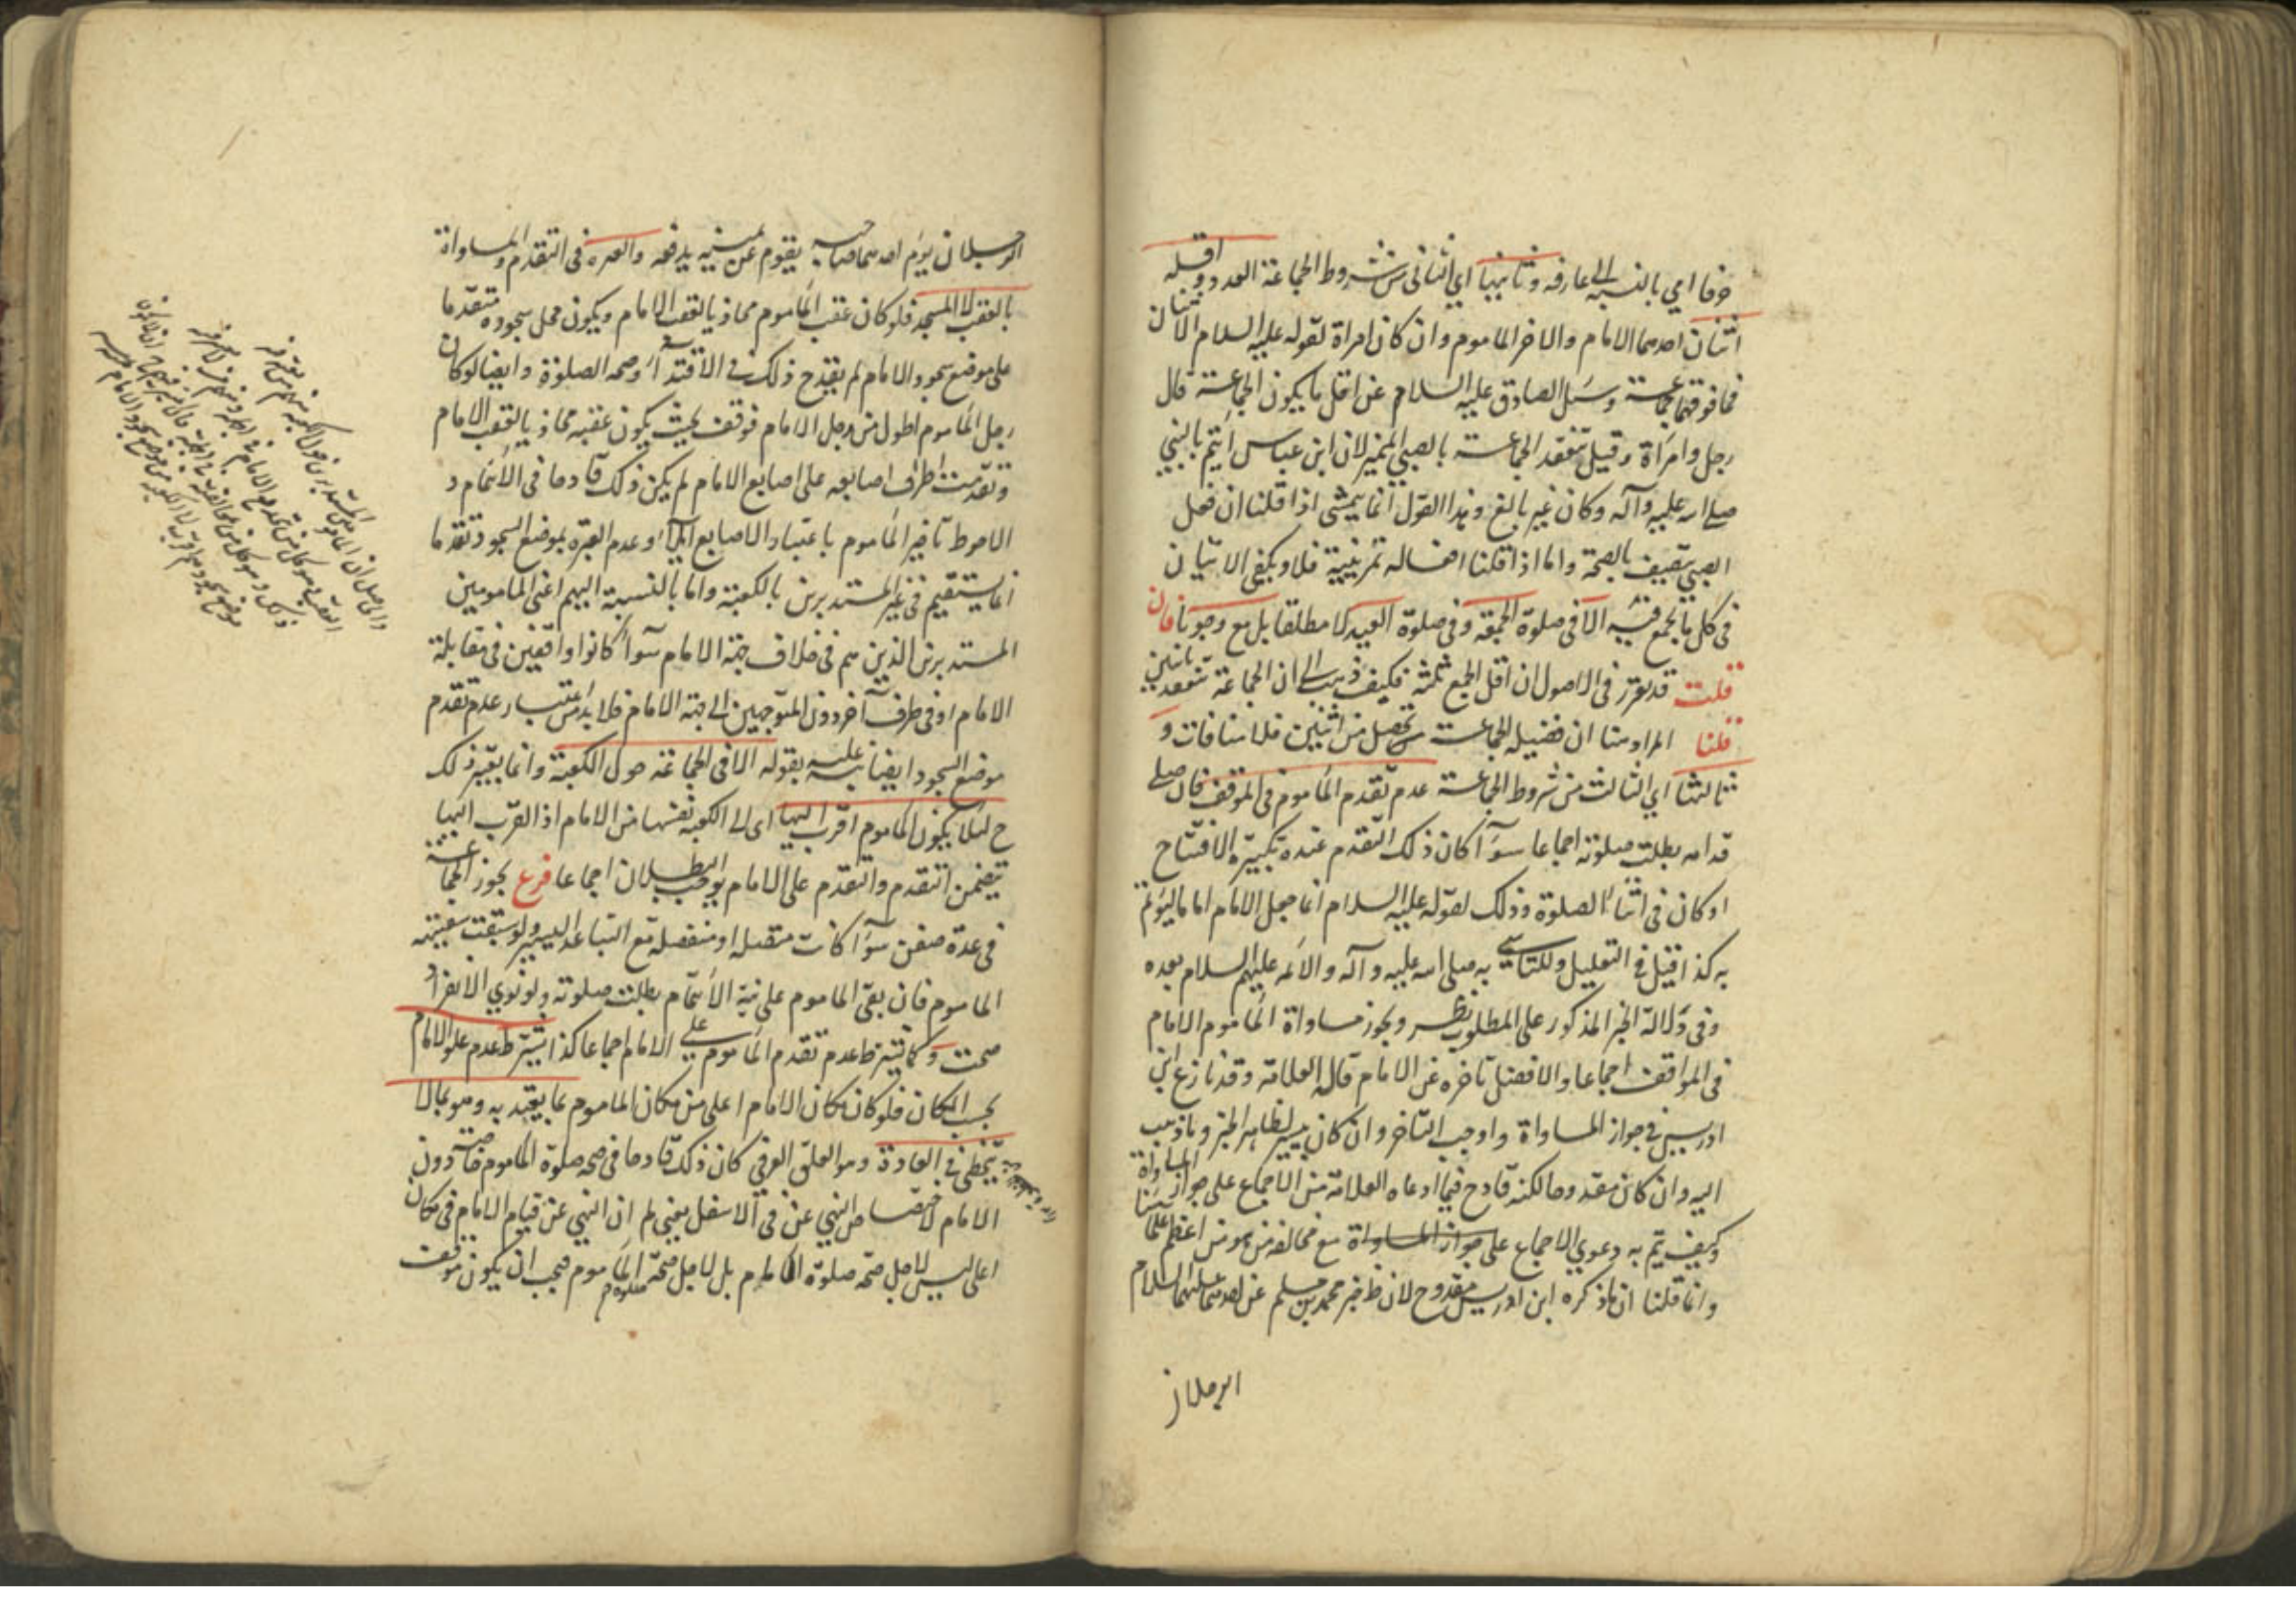 خوفا امي بالنسبة الى عارفه وثانيها اي الثاني من شروط الجماعة العدد واقله
اثنان احدهما الامام والاخر الماموم وان كان امراة لقوله عليه السلام الاثنان
فما فوقهما جماعة وسئل الصادق عليه السلام عن اقل ما يكون الجماعة قال
رجل وامراة وقيل تنعقد الجماعة بالصبي المميز لان ابن عباس أيتم بالنبي
صلى الله عليه وآله وكان غير بالغ وهذا القول انما يتمشى اذا قلنا ان فعل
الصبي يتصف بالصحة واما اذا قلنا افعاله تمرينية فلا ويكفي الاثنان
في كل ما يجمع فيه الا في صلوة الجمعة وفي صلوة العيد لا مطلقا بل مع وجوبها فان
قلت قد تقرر في الاصول ان اقل الجمع ثلثة فكيف ذهب الى ان الجماعة تنعقد باثنين
قلنا المراد هنا ان فضيله الجماعة تحصل من اثنين فلا منافات و
ثالثها اي الثالث من شروط الجماعة عدم تقدم الماموم في الموقف فان صلى
قدامه بطلت صلوته اجماعا سوآ كان ذلك التقدم عنده تكبيرة الافتتاح
او كان في اثنا الصلوة وذلك لقوله عليه السلام انما جعل الامام اماما ليؤتم
به كذا قيل في التعليل وللتاسي به صلى الله عليه وآله والائمه عليهم السلام بعده
وفي دلالة الخبر المذكور على المطلوب نظر ويجوز مساواة الماموم الامام
في المواقف اجماعا والافضل تاخره عن الامام قاله العلامة وقد نازع ابن
ادريس في جواز المساواة واوجب التاخر وان كان يسير لظاهر الخبر وما ذهب
اليه وان كان مقدوحا لكنه قادح فيما ادعاه العلامة من الاجماع على جواز المساواة
وكيف يتم به دعوي الاجماع على جواز المساواة مع مخالفه من هو من اعظم علمائنا
وانما قلنا ان ما ذكره ابن ادريس مقدوح لان خبر محمد بن مسلم عن احدهما عليهما السلام
الرجلان
الرجلان يؤم احدهما صاحبه يقوم عن يمينه يدفعه والعبره في التقدم والمساواة
بالعقب لا المسجد فلو كان عقب الماموم محاذيا لعقب الامام ويكون محل سجوده متقدما
على موضع سجود الامام لم يقدح ذلك في الاقتدآ وصحه الصلوة وايضا لو كان
رجل الماموم اطول من رجل الامام فوقف بحيث يكون عقبه محاذيا لعقب الامام
وتقدمت اطراف اصابعه على اصابع الامام لم يكن ذلك قادحا في الائتمام و
الاحوط تاخير الماموم باعتبار الاصابع ايضا وعدم العبره بموضع السجود تقدما
انما يستقيم في غير المستديرين بالكعبة واما بالنسبة اليهم اعني المامومين
المستديرين الذين هم في خلاف جهة الامام سوآ كانوا واقفين في مقابلة
الامام او في طرف آخر دون المتوجهين الى جهة الامام فلا بد من اعتبار عدم تقدم
موضع السجود ايضا نبه عليه بقوله الا في الجماعة حول الكعبة وانما يعتبر ذلك
ح لئلا يكون الماموم اقرب اليها اى الى الكعبة نفسها من الامام اذ القرب اليها
يتضمن التقدم والتقدم على الامام يوجب البطلان اجماعا فرع يجوز الجماعة
في عدة سفن سوآ كانت متصله او منفصله مع التباعد اليسير ولو سبقت سفينة
الماموم فان بقى الماموم على نية الائتمام بطلت صلوته ولو نوي الانفراد
صحت وكما يشترط عدم تقدم الماموم على الامام اجماعا كذا يشترط عدم علو الامام
بحسب المكان فلو كان مكان الامام اعلى من مكان الماموم بما يعتد به وهو بما لا
يتخطى في العادة وهو العلو العرفي كان ذلك قادحا في صحه صلوة الماموم خاصة دون
الامام لاختصاص النهي عن في الاسفل يعني لهم ان النهي عن قيام الامام في مكان
اعلى ليس لاجل صحة صلوة الامام بل لاجل صحة صلوة الماموم فيجب ان يكون موقف